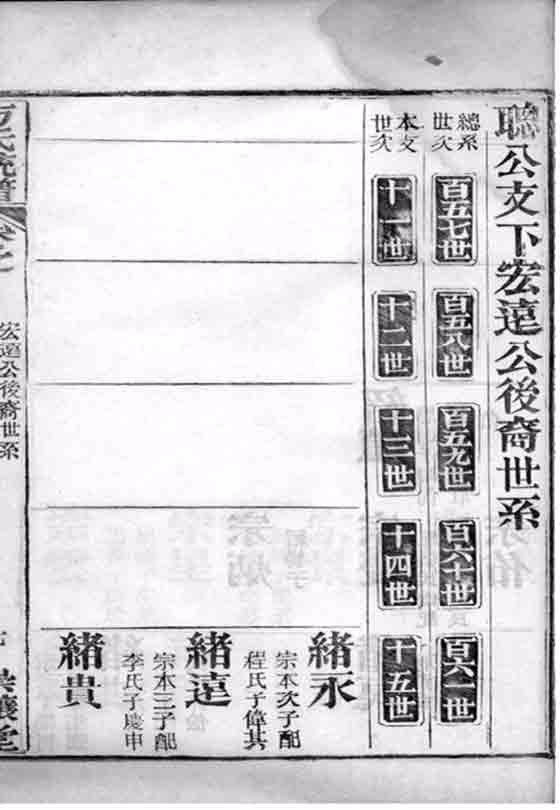 聯公支下宏遠公後裔世系
總系世次
百五七世
百五八世
百五九世
百六十世
百六一世
本支世次
十一世
十二世
十三世
十四世
十五世
緒永
宗本次子配
程氏子偉其
緒遠
宗本三子配
李氏子慶申
緒貴
宏遠公後裔世系